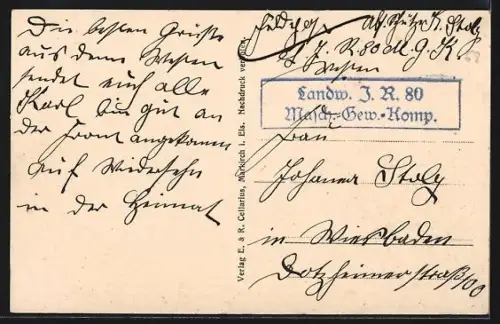 Die besten Grüße
aus dem Westen
sendet euch alle
Karl bin gut an
der Front angekommen
auf Wiedersehn
in der Heimat
Verlag E. & R. Cellarius, Markirch i. Els. Nachdruck verboten.
Feldpost Abs. Schütze K. Stolz
L. J. R. 80 M. G. K.
Westen
Landw. J. R. 80
Masch.-Gew.-Komp.
Frau
Johanna Stolz
in Wiesbaden
Dotzheimerstraße 100